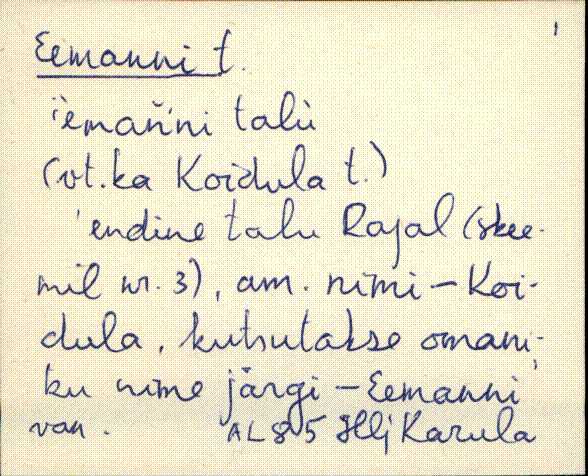 Eemanni t.
'èmañ'ni talù
(vt. ka Koidula t.)
'endine talu Rajal (skee-
mil nr. 3), am. nimi - Koi-
dula, kutsutakse omani-
ku nime järgi - Eemanni
van. AL 85 Hlj Karula